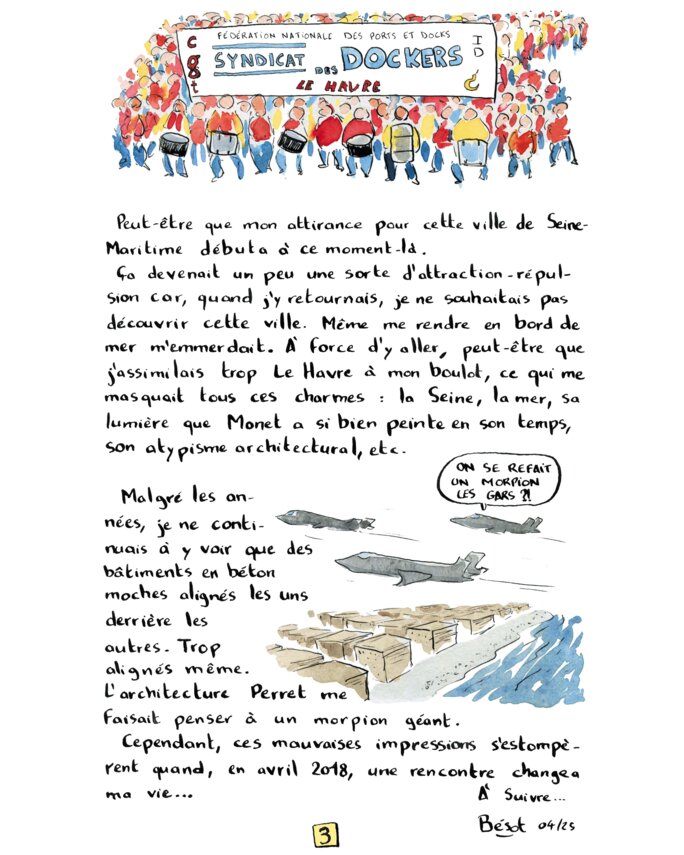 FÉDÉRATION NATIONALE DES PORTS ET DOCKS
cgt SYNDICAT DES DOCKERS
LE HAVRE
Peut-être que mon attirance pour cette ville de Seine-
Maritime débuta à ce moment-là.
Ça devenait un peu une sorte d'attraction-répul-
sion car, quand j'y retournais, je ne souhaitais pas
découvrir cette ville. Même me rendre en bord de
mer m'emmerdait. À force d'y aller, peut-être que
j'assimilais trop Le Havre à mon boulot, ce qui me
masquait tous ces charmes : la Seine, la mer, sa
lumière que Monet a si bien peinte en son temps,
son atypisme architectural, etc.
ON SE REFAIT
UN MORPION
LES GARS ?!
Malgré les an-
nées, je ne conti-
nuais à y voir que des
bâtiments en béton
moches alignés les uns
derrière les
autres. Trop
alignés même.
L'architecture Perret me
faisait penser à un morpion géant.
Cependant, ces mauvaises impressions s'estompè-
rent quand, en avril 2018, une rencontre changea
ma vie...
À Suivre...
Bésot 04/25
3